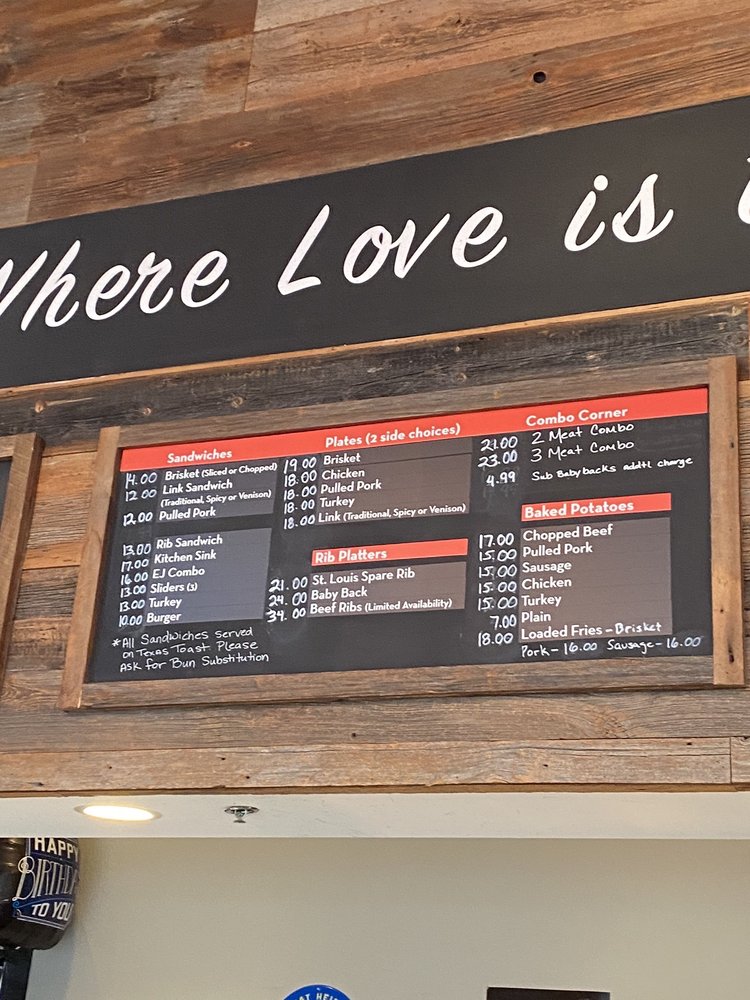 Where Love is
Sandwiches
14.00 Brisket (Sliced or Chopped)
12.00 Link Sandwich
(Traditional, Spicy or Venison)
12.00 Pulled Pork
13.00 Rib Sandwich
17.00 Kitchen Sink
16.00 EJ Combo
13.00 Sliders (3)
13.00 Turkey
10.00 Burger
*All Sandwiches served
on Texas Toast Please
Ask for Bun Substitution
Plates (2 side choices)
19.00 Brisket
18.00 Chicken
18.00 Pulled Pork
18.00 Turkey
18.00 Link (Traditional, Spicy or Venison)
Rib Platters
21.00 St. Louis Spare Rib
24.00 Baby Back
34.00 Beef Ribs (Limited Availability)
Combo Corner
21.00 2 Meat Combo
23.00 3 Meat Combo
4.99 Sub Babybacks addtl charge
Baked Potatoes
17.00 Chopped Beef
15.00 Pulled Pork
15.00 Sausage
15.00 Chicken
15.00 Turkey
7.00 Plain
18.00 Loaded Fries - Brisket
Pork - 16.00 Sausage - 16.00
HAPPY
BIRTHDAY
TO YOU